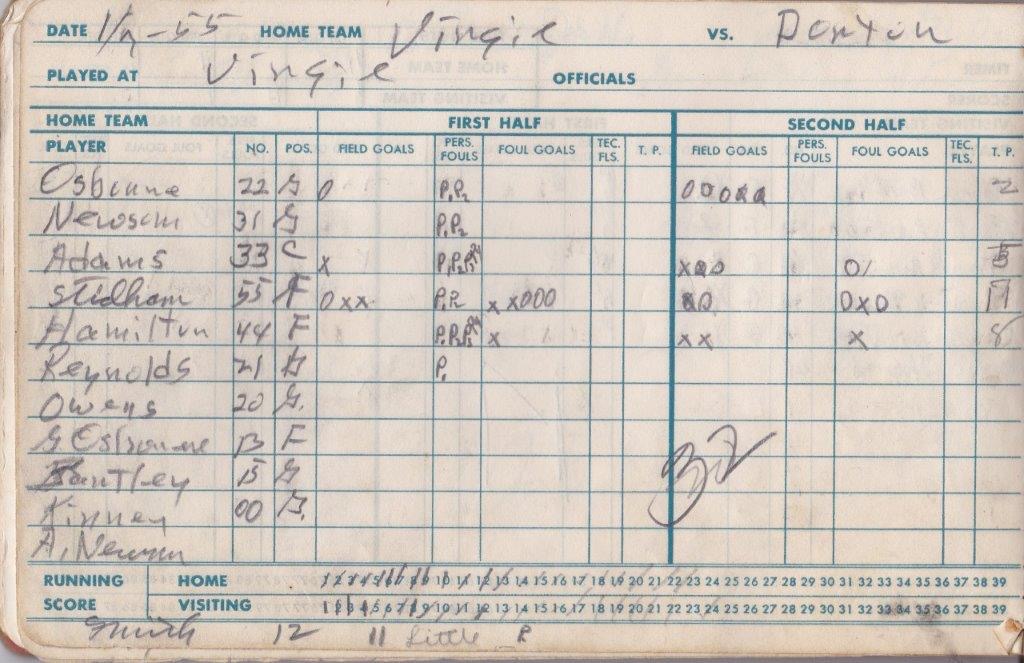 DATE 1/7-55 HOME TEAM Virgie VS. Dorton
PLAYED AT Virgie OFFICIALS
HOME TEAM FIRST HALF SECOND HALF
PLAYER NO. POS. FIELD GOALS PERS. FOULS FOUL GOALS TEC. FLS. T. P. FIELD GOALS PERS. FOULS FOUL GOALS TEC. FLS. T. P.
Osbourne 22 G O P1P2 2
Newsom 31 G P1P2
Adams 33 C x 5
Stidham 55 F O x x x x O O O O x O 11
Hamilton 44 F x x x x 8
Reynolds 21 G P1
Owens 20 G.
G Osbourne 13 F
Bantley 15 G
Kinney 00 G.
A. Newsom
32
RUNNING HOME 1 2 3 4 5 6 7 8 9 10 11 12 13 14 15 16 17 18 19 20 21 22 23 24 25 26 27 28 29 30 31 32 33 34 35 36 37 38 39
SCORE VISITING 1 2 3 4 5 6 7 8 9 10 11 12 13 14 15 16 17 18 19 20 21 22 23 24 25 26 27 28 29 30 31 32 33 34 35 36 37 38 39
Smith 12 11 Little R